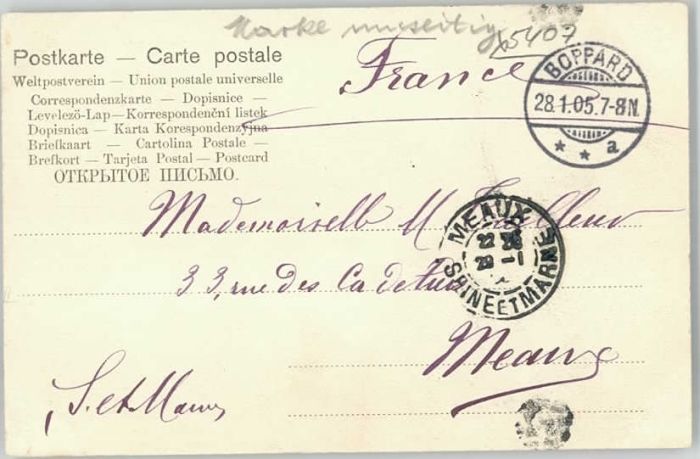 Marke umseitig
x5407
Postkarte — Carte postale
Weltpostverein — Union postale universelle
Correspondenzkarte — Dopisnice —
Levelező-Lap—Korrespondenční listek
Dopisnica — Karta Korespondenzyjna
Briefkaart — Cartolina Postale —
Brefkort — Tarjeta Postal — Postcard
ОТКРЫТОЕ ПИСЬМО.
France
BOPPARD
28.1.05.7-8N.
* * a
Mademoiselle M
MEAUX
29 -1
SEINE ET MARNE
33, rue des
Meaux
S. et Marne